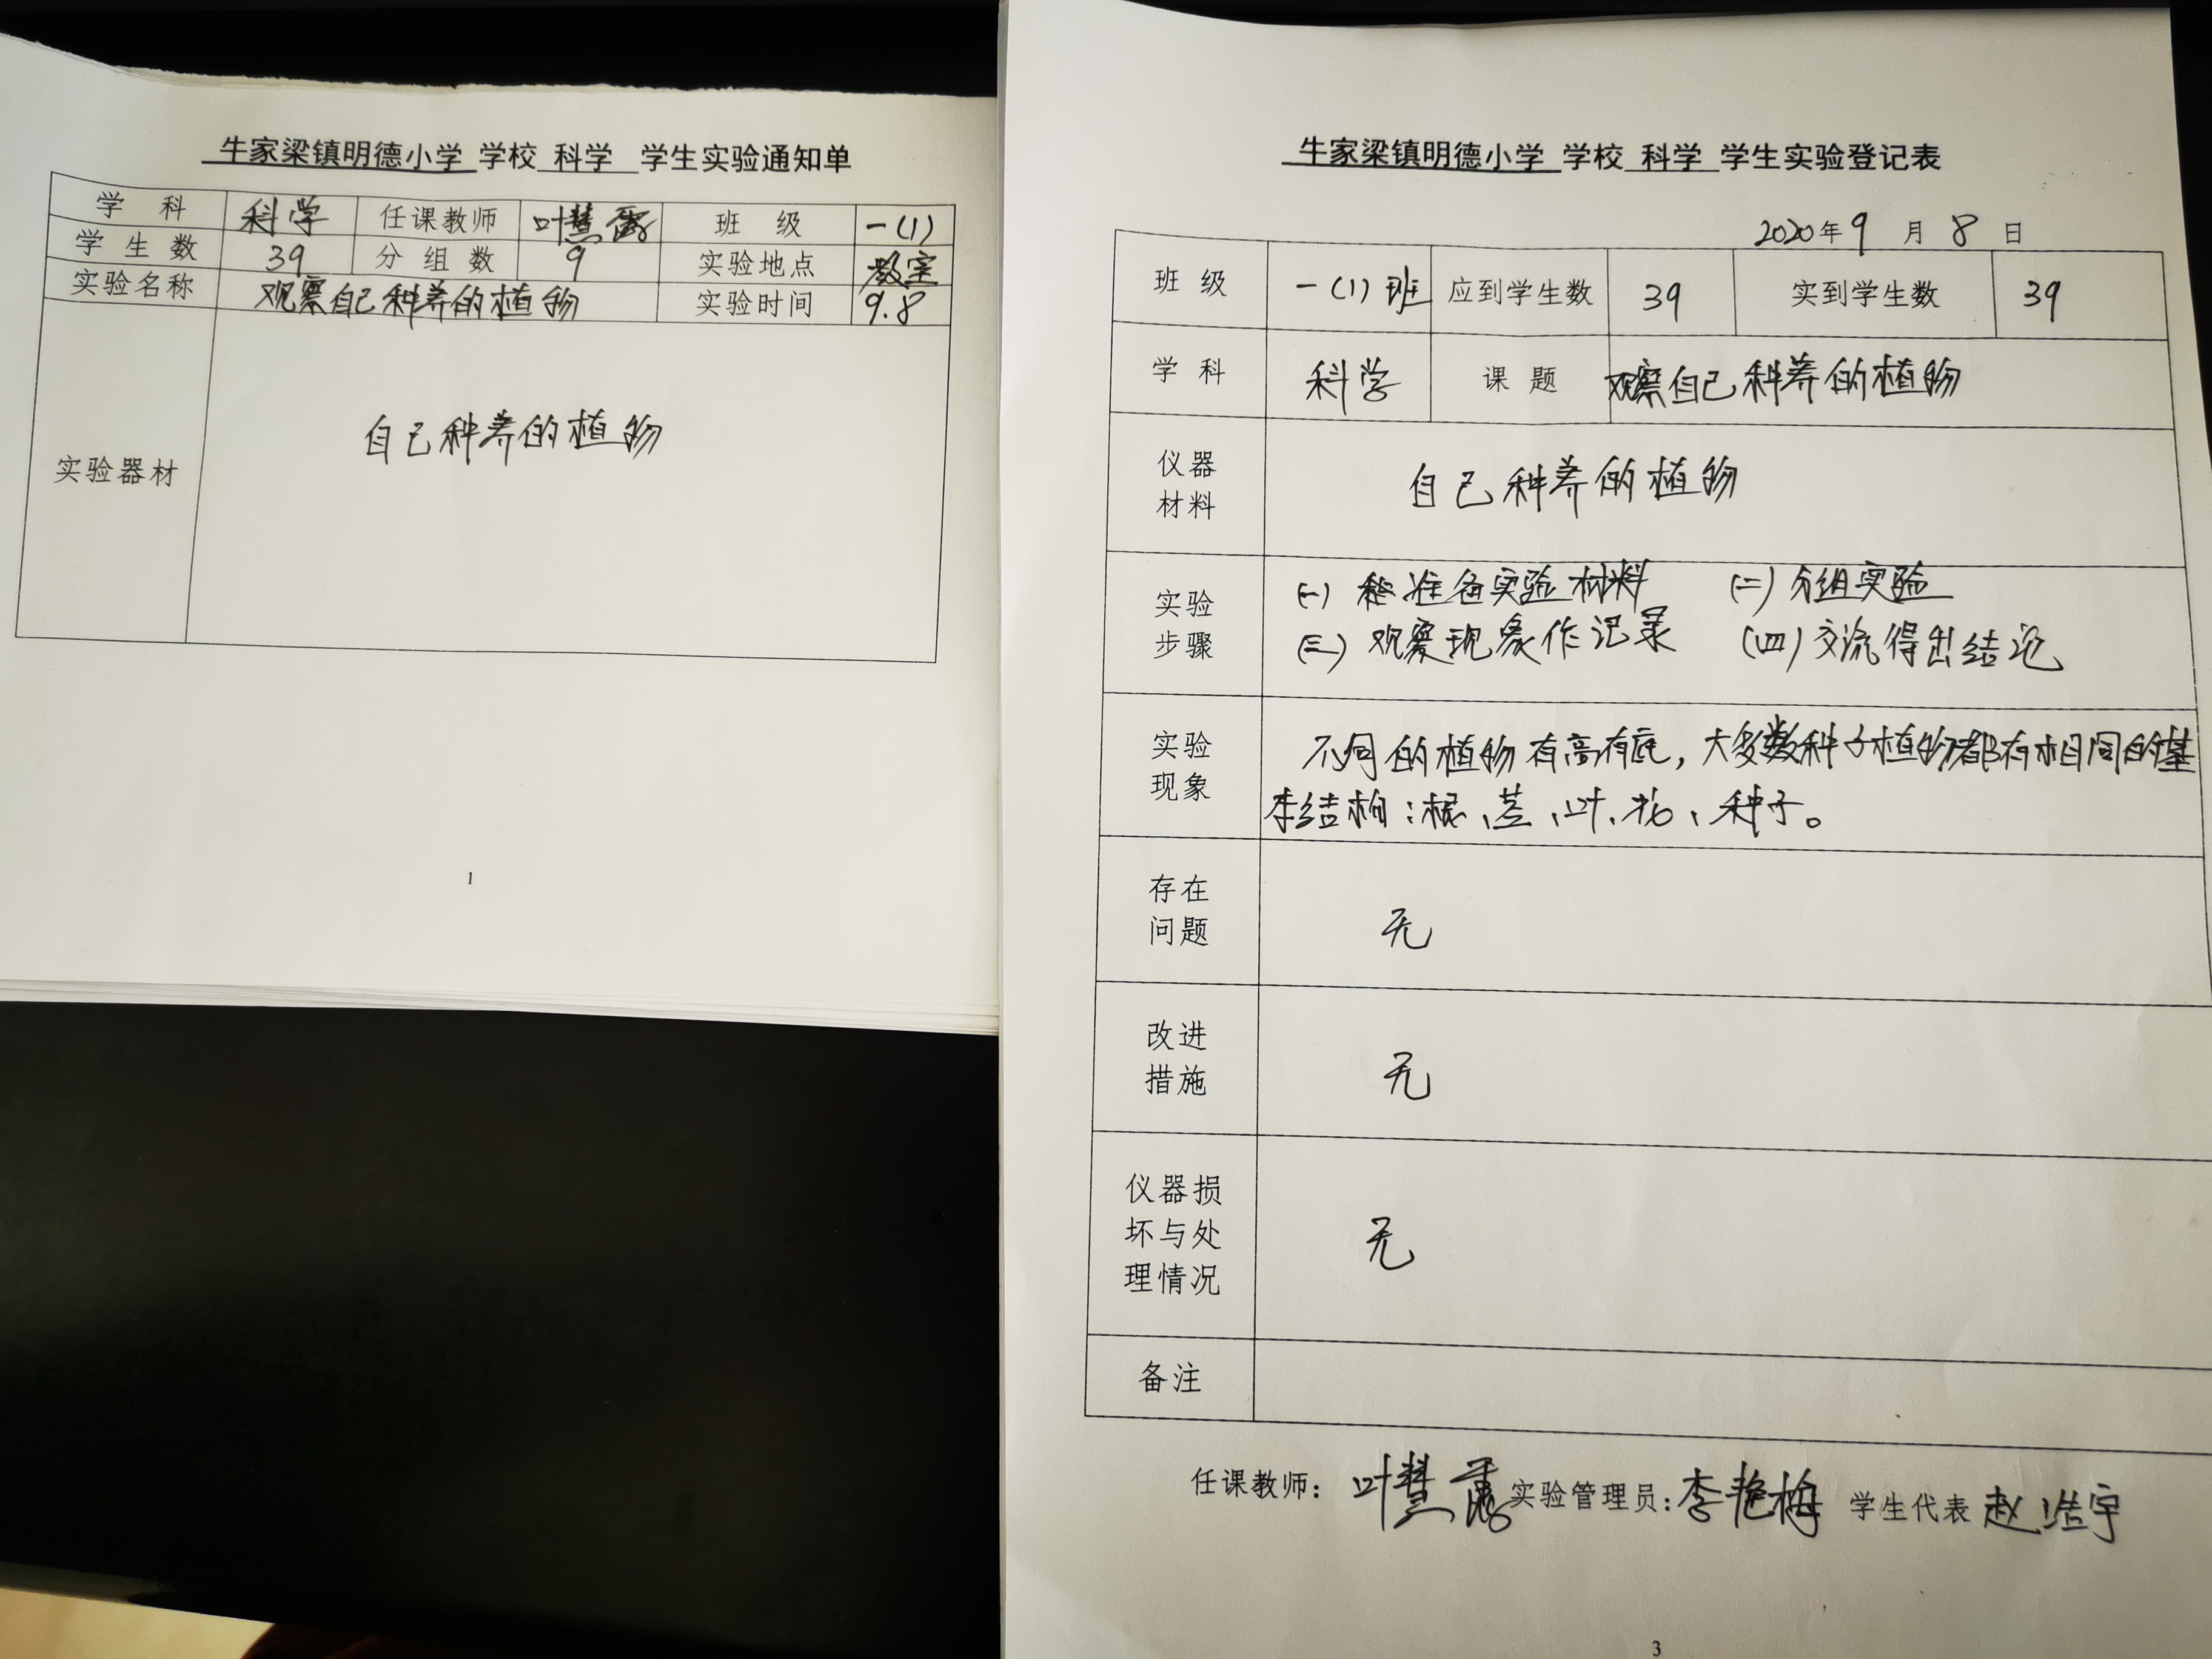 牛家梁镇明德小学 学校 科学 学生实验通知单
学 科 科学 任课教师 叶慧 班 级 一(1)
学 生 数 39 分 组 数 9 实验地点 教室
实验名称 观察自己种养的植物 实验时间 9.8
实验器材 自己种养的植物
1
牛家梁镇明德小学 学校 科学 学生实验登记表
2020年 9 月 8 日
班 级 一(1)班 应到学生数 39 实到学生数 39
学 科 科学 课 题 观察自己种养的植物
仪器
材料
自己种养的植物
实验
步骤
(一) 准备实验材料 (二) 分组实验
(三) 观察现象作记录 (四) 交流得出结论
实验
现象
不同的植物有高有底，大多数种子植物都有相同的基
本结构：根、茎、叶、花、种子。
存在
问题
无
改进
措施
无
仪器损
坏与处
理情况
无
备注
任课教师： 叶慧 实验管理员：李艳梅 学生代表 赵浩宇
3